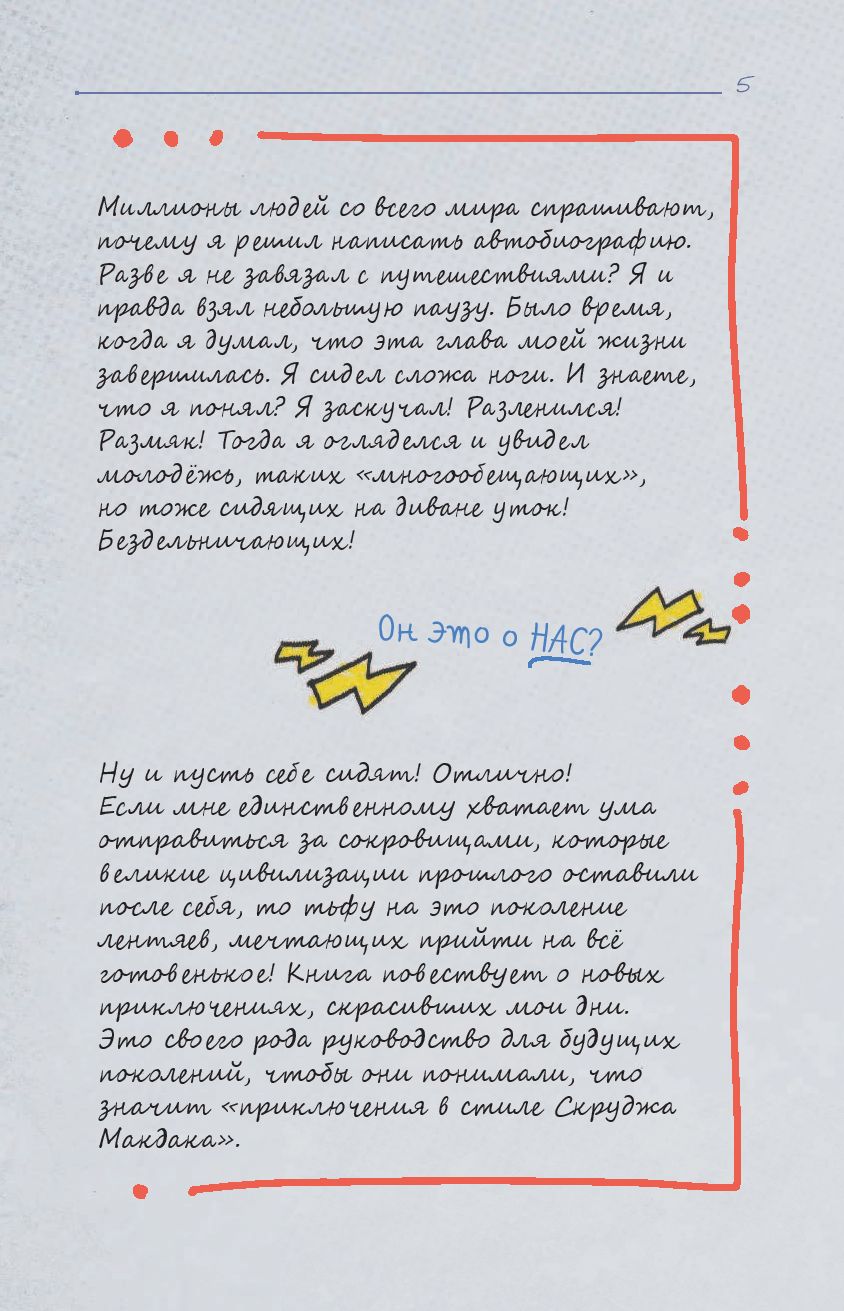 5
Миллионы людей со всего мира спрашивают,
почему я решил написать автобиографию.
Разве я не завязал с путешествиями? Я и
правда взял небольшую паузу. Было время,
когда я думал, что эта глава моей жизни
завершилась. Я сидел сложа ноги. И знаете,
что я понял? Я заскучал! Разленился!
Размяк! Тогда я огляделся и увидел
молодёжь, таких «многообещающих»,
но тоже сидящих на диване уток!
Бездельничающих!
Он это о НАС?
Ну и пусть себе сидят! Отлично!
Если мне единственному хватает ума
отправиться за сокровищами, которые
великие цивилизации прошлого оставили
после себя, то тьфу на это поколение
лентяев, мечтающих прийти на всё
готовенькое! Книга повествует о новых
приключениях, скрасивших мои дни.
Это своего рода руководство для будущих
поколений, чтобы они понимали, что
значит «приключения в стиле Скруджа
Макдака».